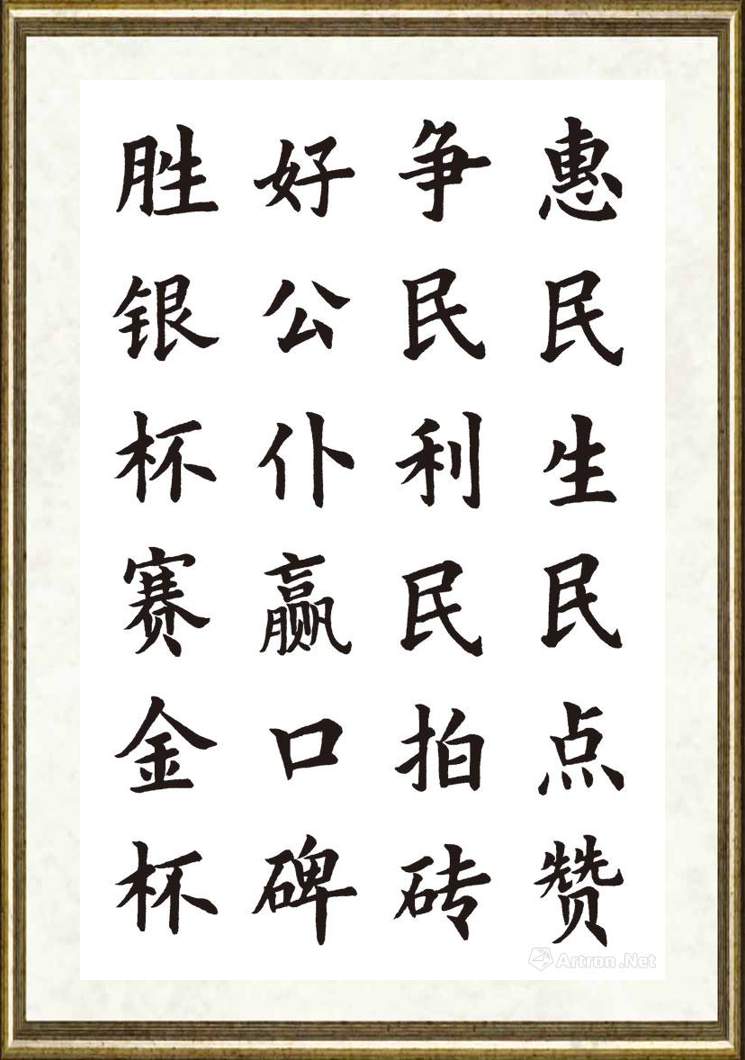 惠民生民点赞
争民利民拍砖
好公仆赢口碑
胜银杯赛金杯
Artron.Net